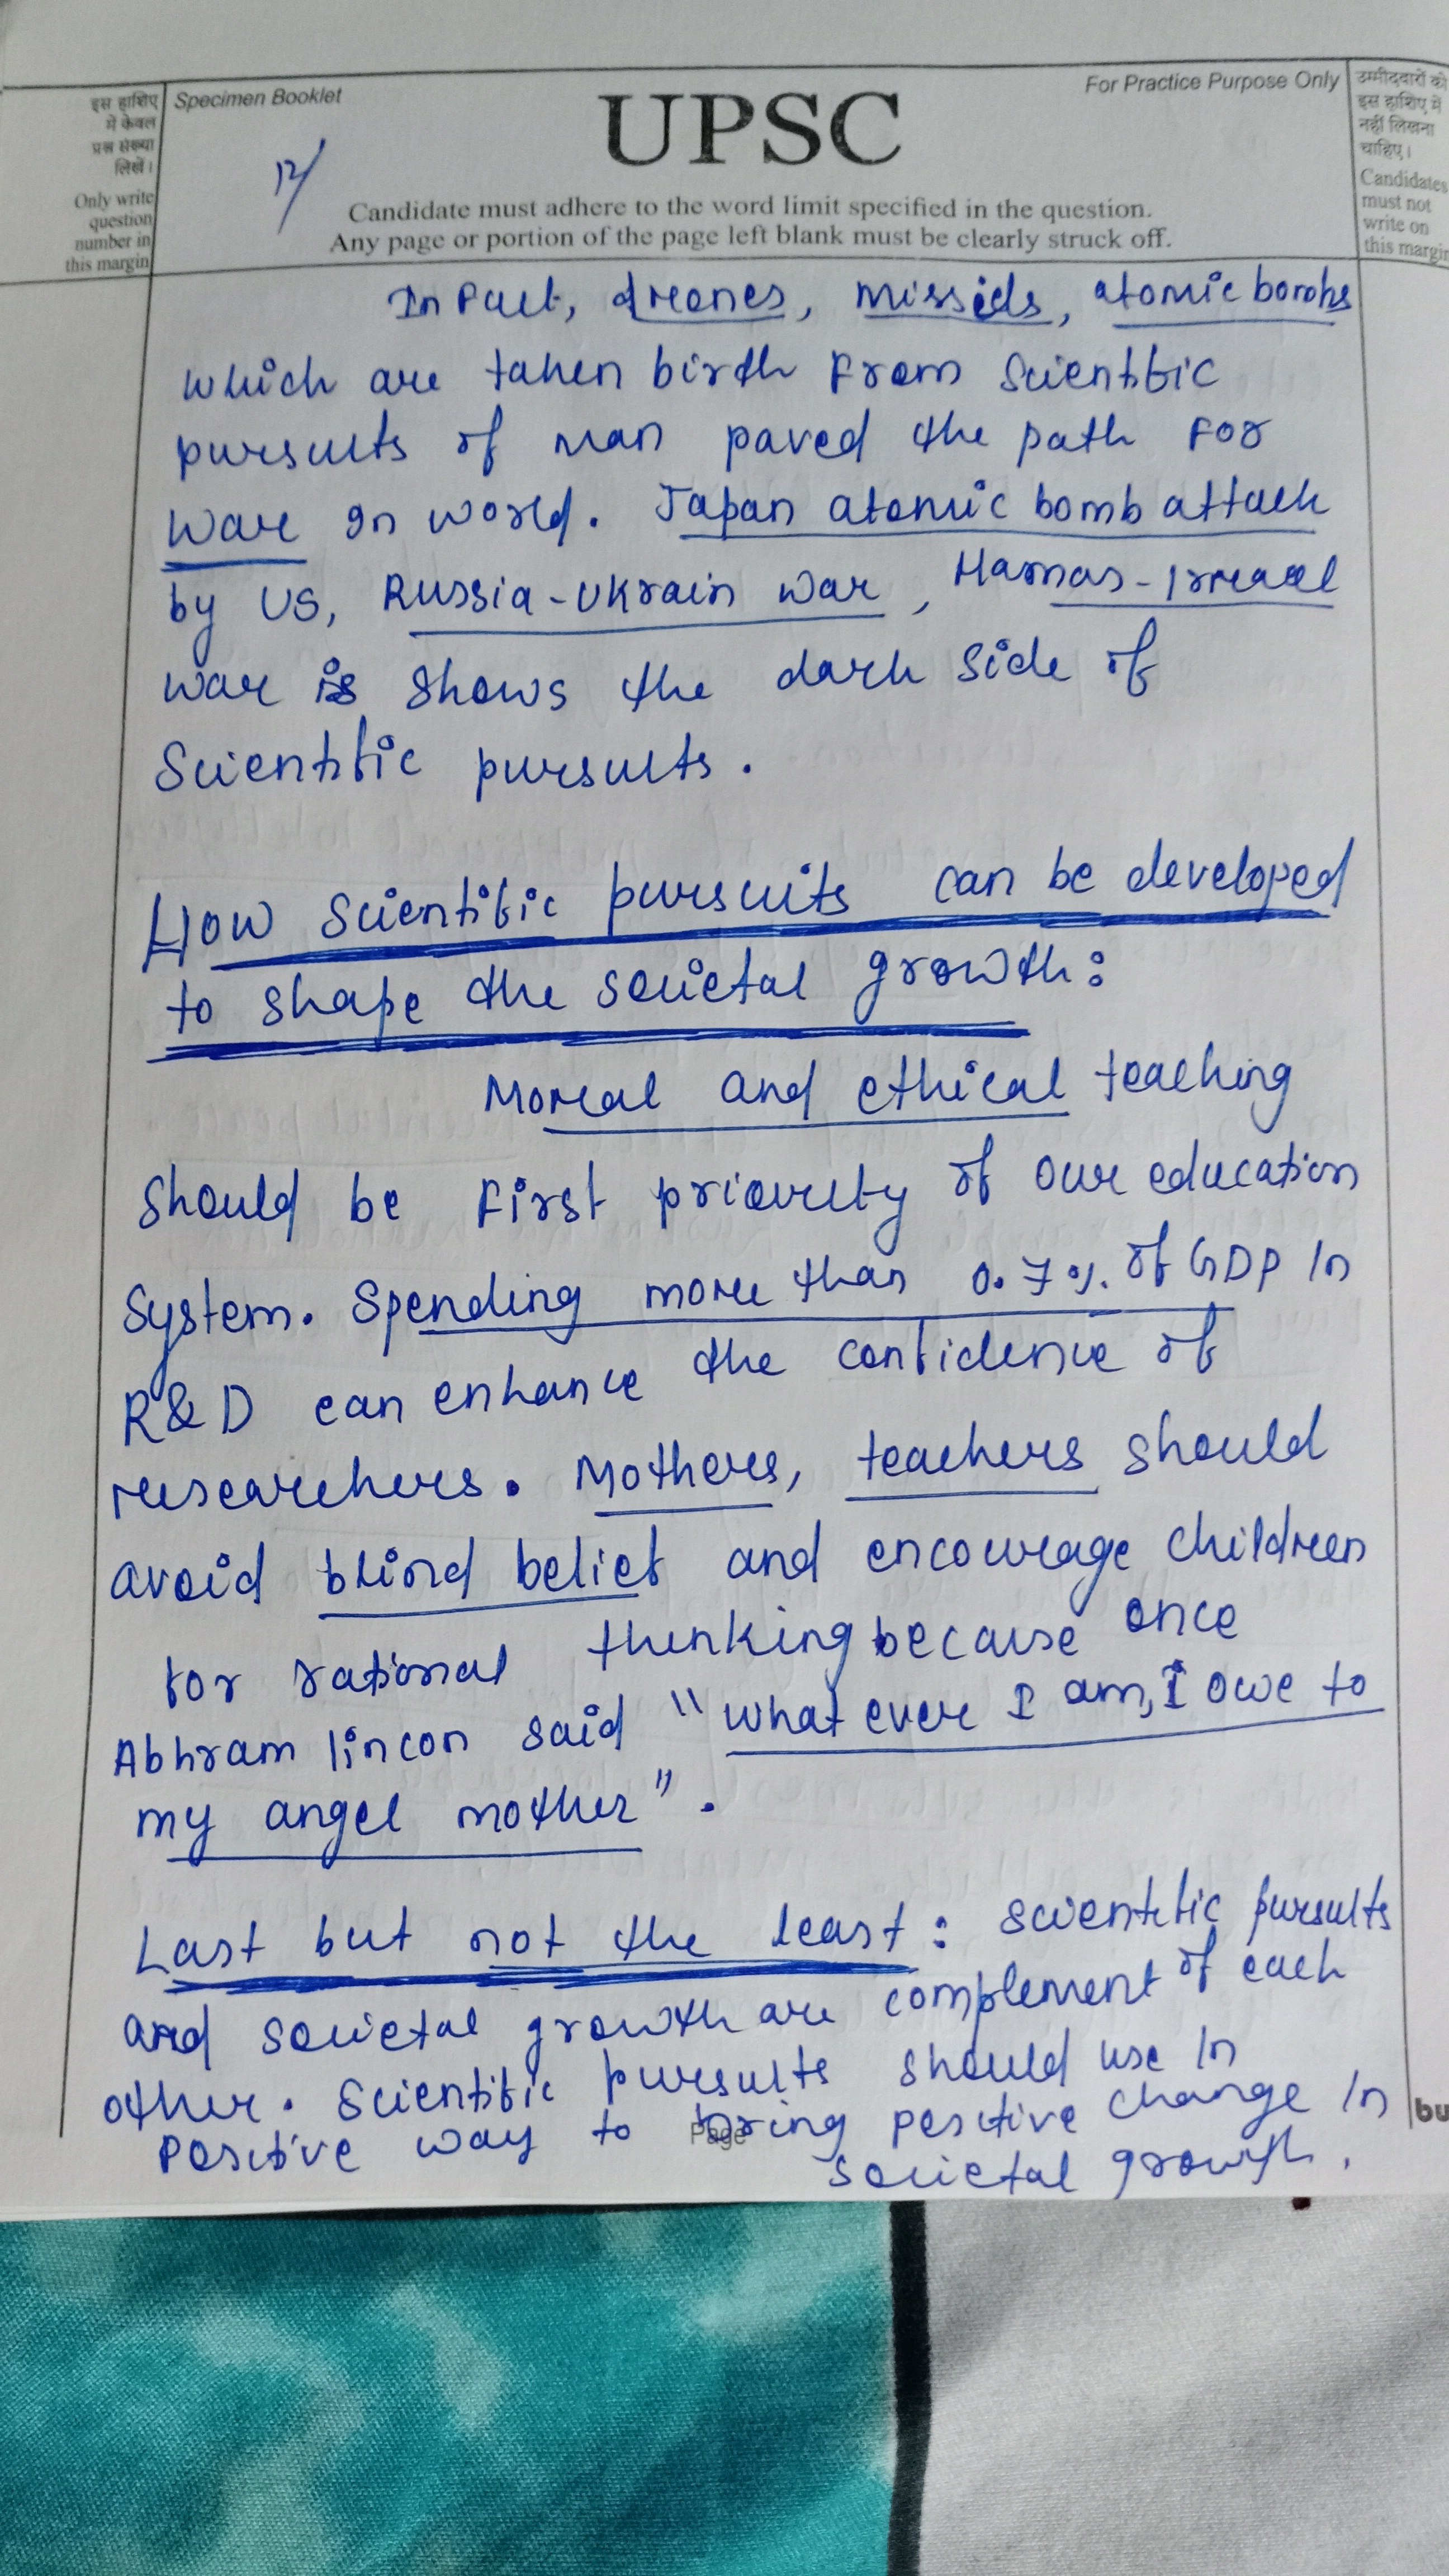 इस हाशिए
में केवल
प्रश्न संख्या
लिखें।
Only write
question
number in
this margin
Specimen Booklet
12/
UPSC
For Practice Purpose Only
Candidate must adhere to the word limit specified in the question.
Any page or portion of the page left blank must be clearly struck off.
उम्मीदवारों को
इस हाशिए में
नहीं लिखना
चाहिए।
Candidates
must not
write on
this margin
In Fact, drones, missiels, atomic bombs
which are taken birth From scientific
pursuits of man paved the path For
War in world. Japan atomic bomb attack
by US, Russia-Ukrain war, Hamas-Isreael
war is shows the dark side of
Scientific pursuits.
How scientific pursuits can be developed
to shape the societal growth:
Moreal and ethical teaching
should be First priority of our education
System. Spending more than 0.7% of GDP in
R&D can enhance the confidence of
researchers. Mothers, teachers should
avoid blind belief and encourage children
for rational thinking because once
Abhram lincon said "what ever I am, I owe to
my angel mother".
Last but not the least: scientific pursuits
and societal growth are complement of each
other. Scientific pursuits should use in
Positive way to bring positive change in
Page
societal growth.
bu